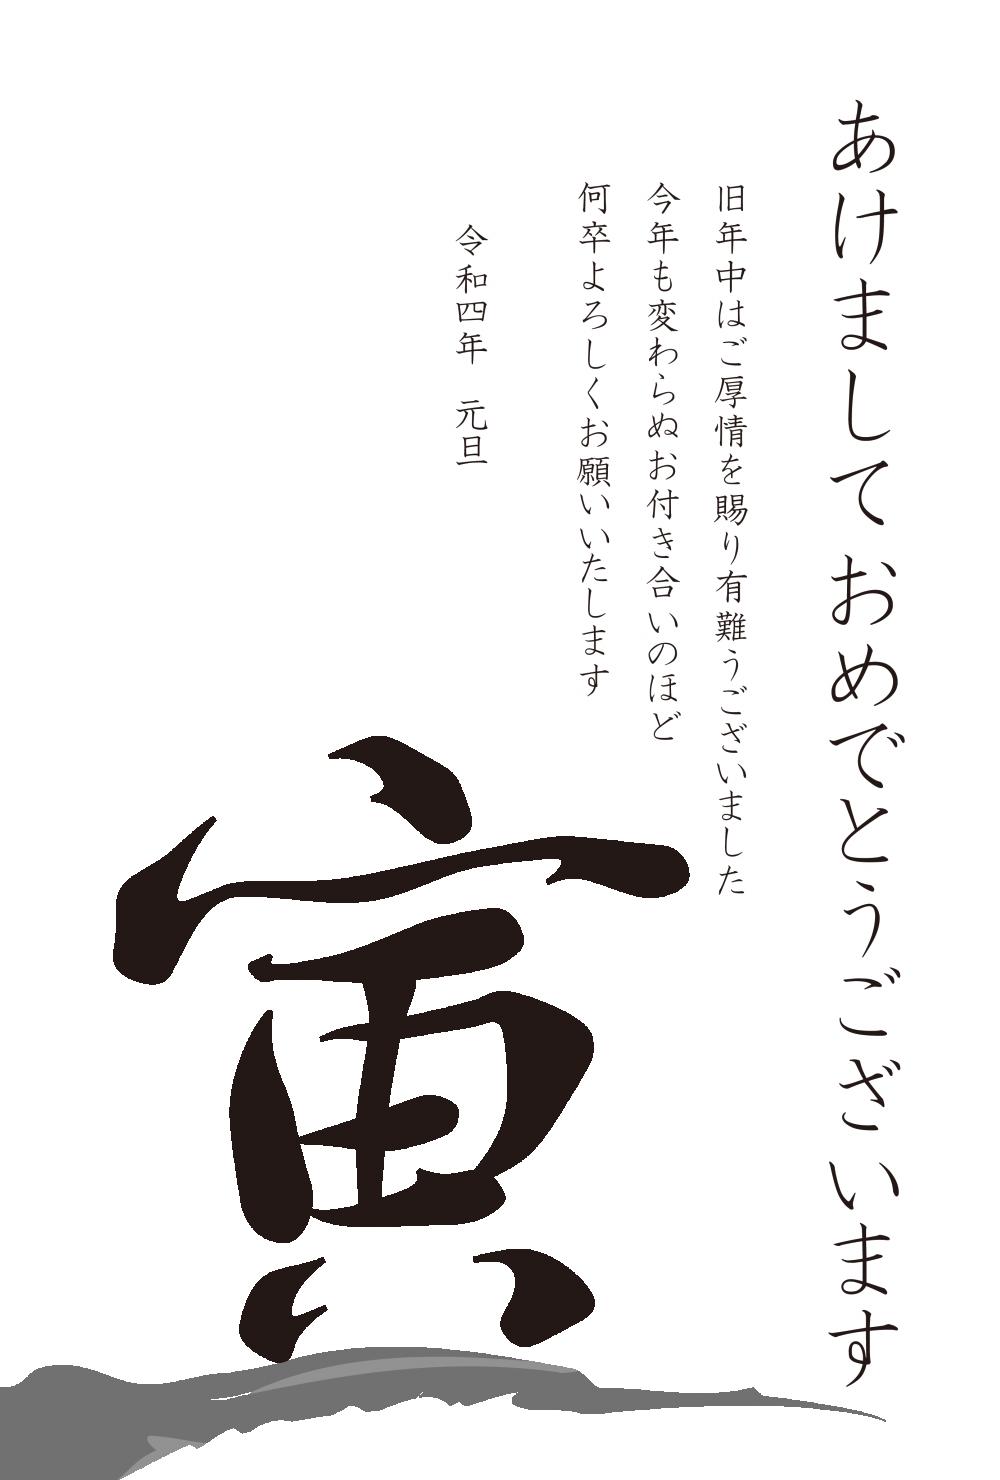 あけましておめでとうございます
旧年中はご厚情を賜り有難うございました
今年も変わらぬお付き合いのほど
何卒よろしくお願いいたします
令和四年　元旦
寅